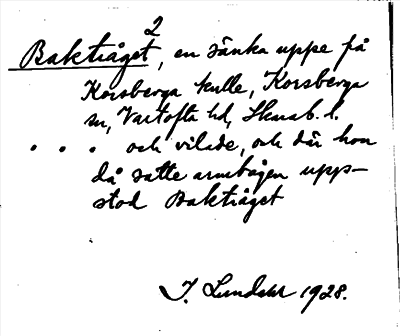 2
Baktråget, en sänka uppe på
Korsberga kulle, Korsberga
sn, Vartofta hd, Skarab. l.
. . . och vilade, och där hon
då satte armbågen upp-
stod Baktråget
J. Lundahl 1928.